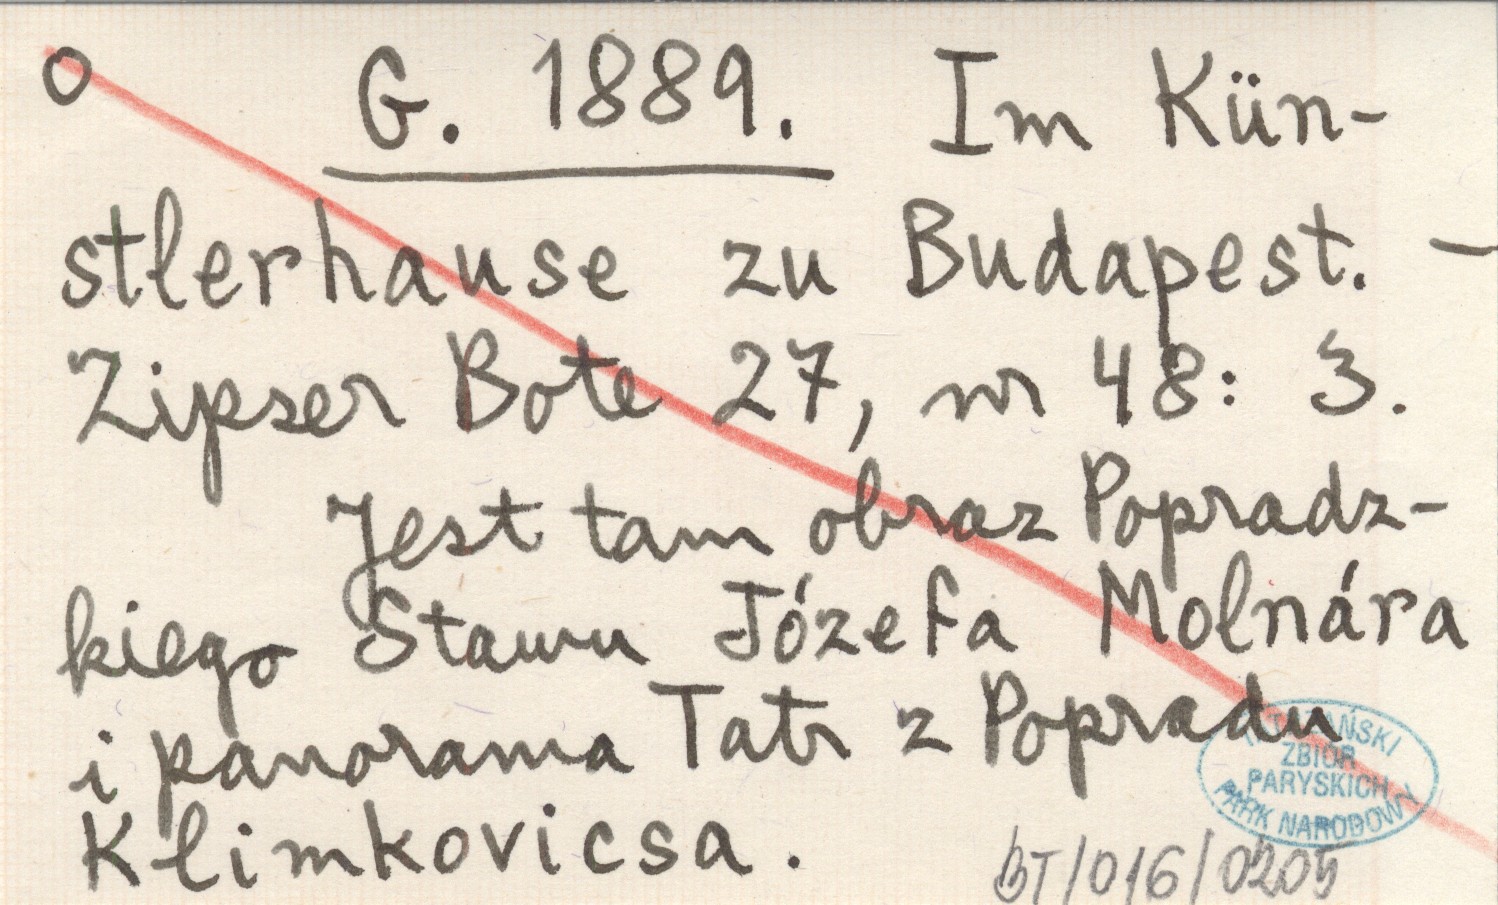 O G. 1889. Im Kün-
stlerhause zu Budapest. -
Zipser Bote 27, nr 48: 3.
Jest tam obraz Popradz-
kiego Stawu Józefa Molnára
i panorama Tatr z Popradu
Klimkovicsa.
TATRZAŃSKI
ZBIOR
PARYSKICH
PARK NARODOWY
BT/016/0205